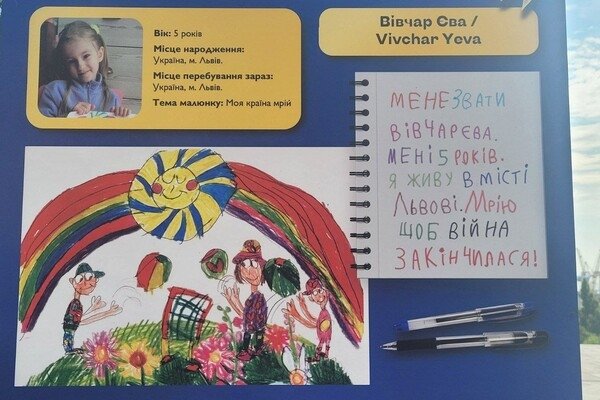 Вік: 5 років
Місце народження:
Україна, м. Львів.
Місце перебування зараз:
Україна, м. Львів.
Тема малюнку: Моя країна мрій
Вівчар Єва /
Vivchar Yeva
МЕНЕ ЗВАТИ
ВІВЧАР ЄВА.
МЕНІ 5 РОКІВ.
Я ЖИВУ В МІСТІ
ЛЬВОВІ. МРІЮ
ЩОБ ВІЙНА
ЗАКІНЧИЛАСЯ!